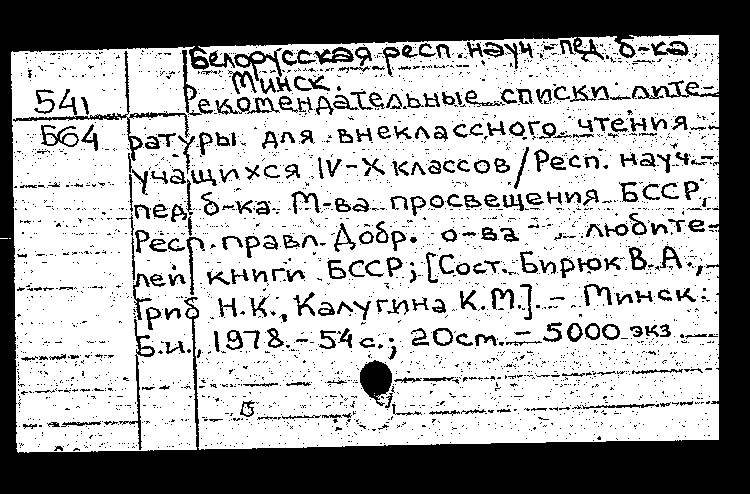 Белорусская респ. науч.-пед. б-ка
Минск.
541 Рекомендательные списки лите-
Б64 ратуры для внеклассного чтения
учащихся IV-X классов/Респ. науч.-
пед. б-ка М-ва просвещения БССР,
Респ. правл. Добр. о-ва любите-
лей книги БССР; [Сост. Бирюк В.А.,
Гриб Н.К., Калугина К.М.]. - Минск:
Б.и., 1978. - 54 с.; 20см. - 5000 экз.